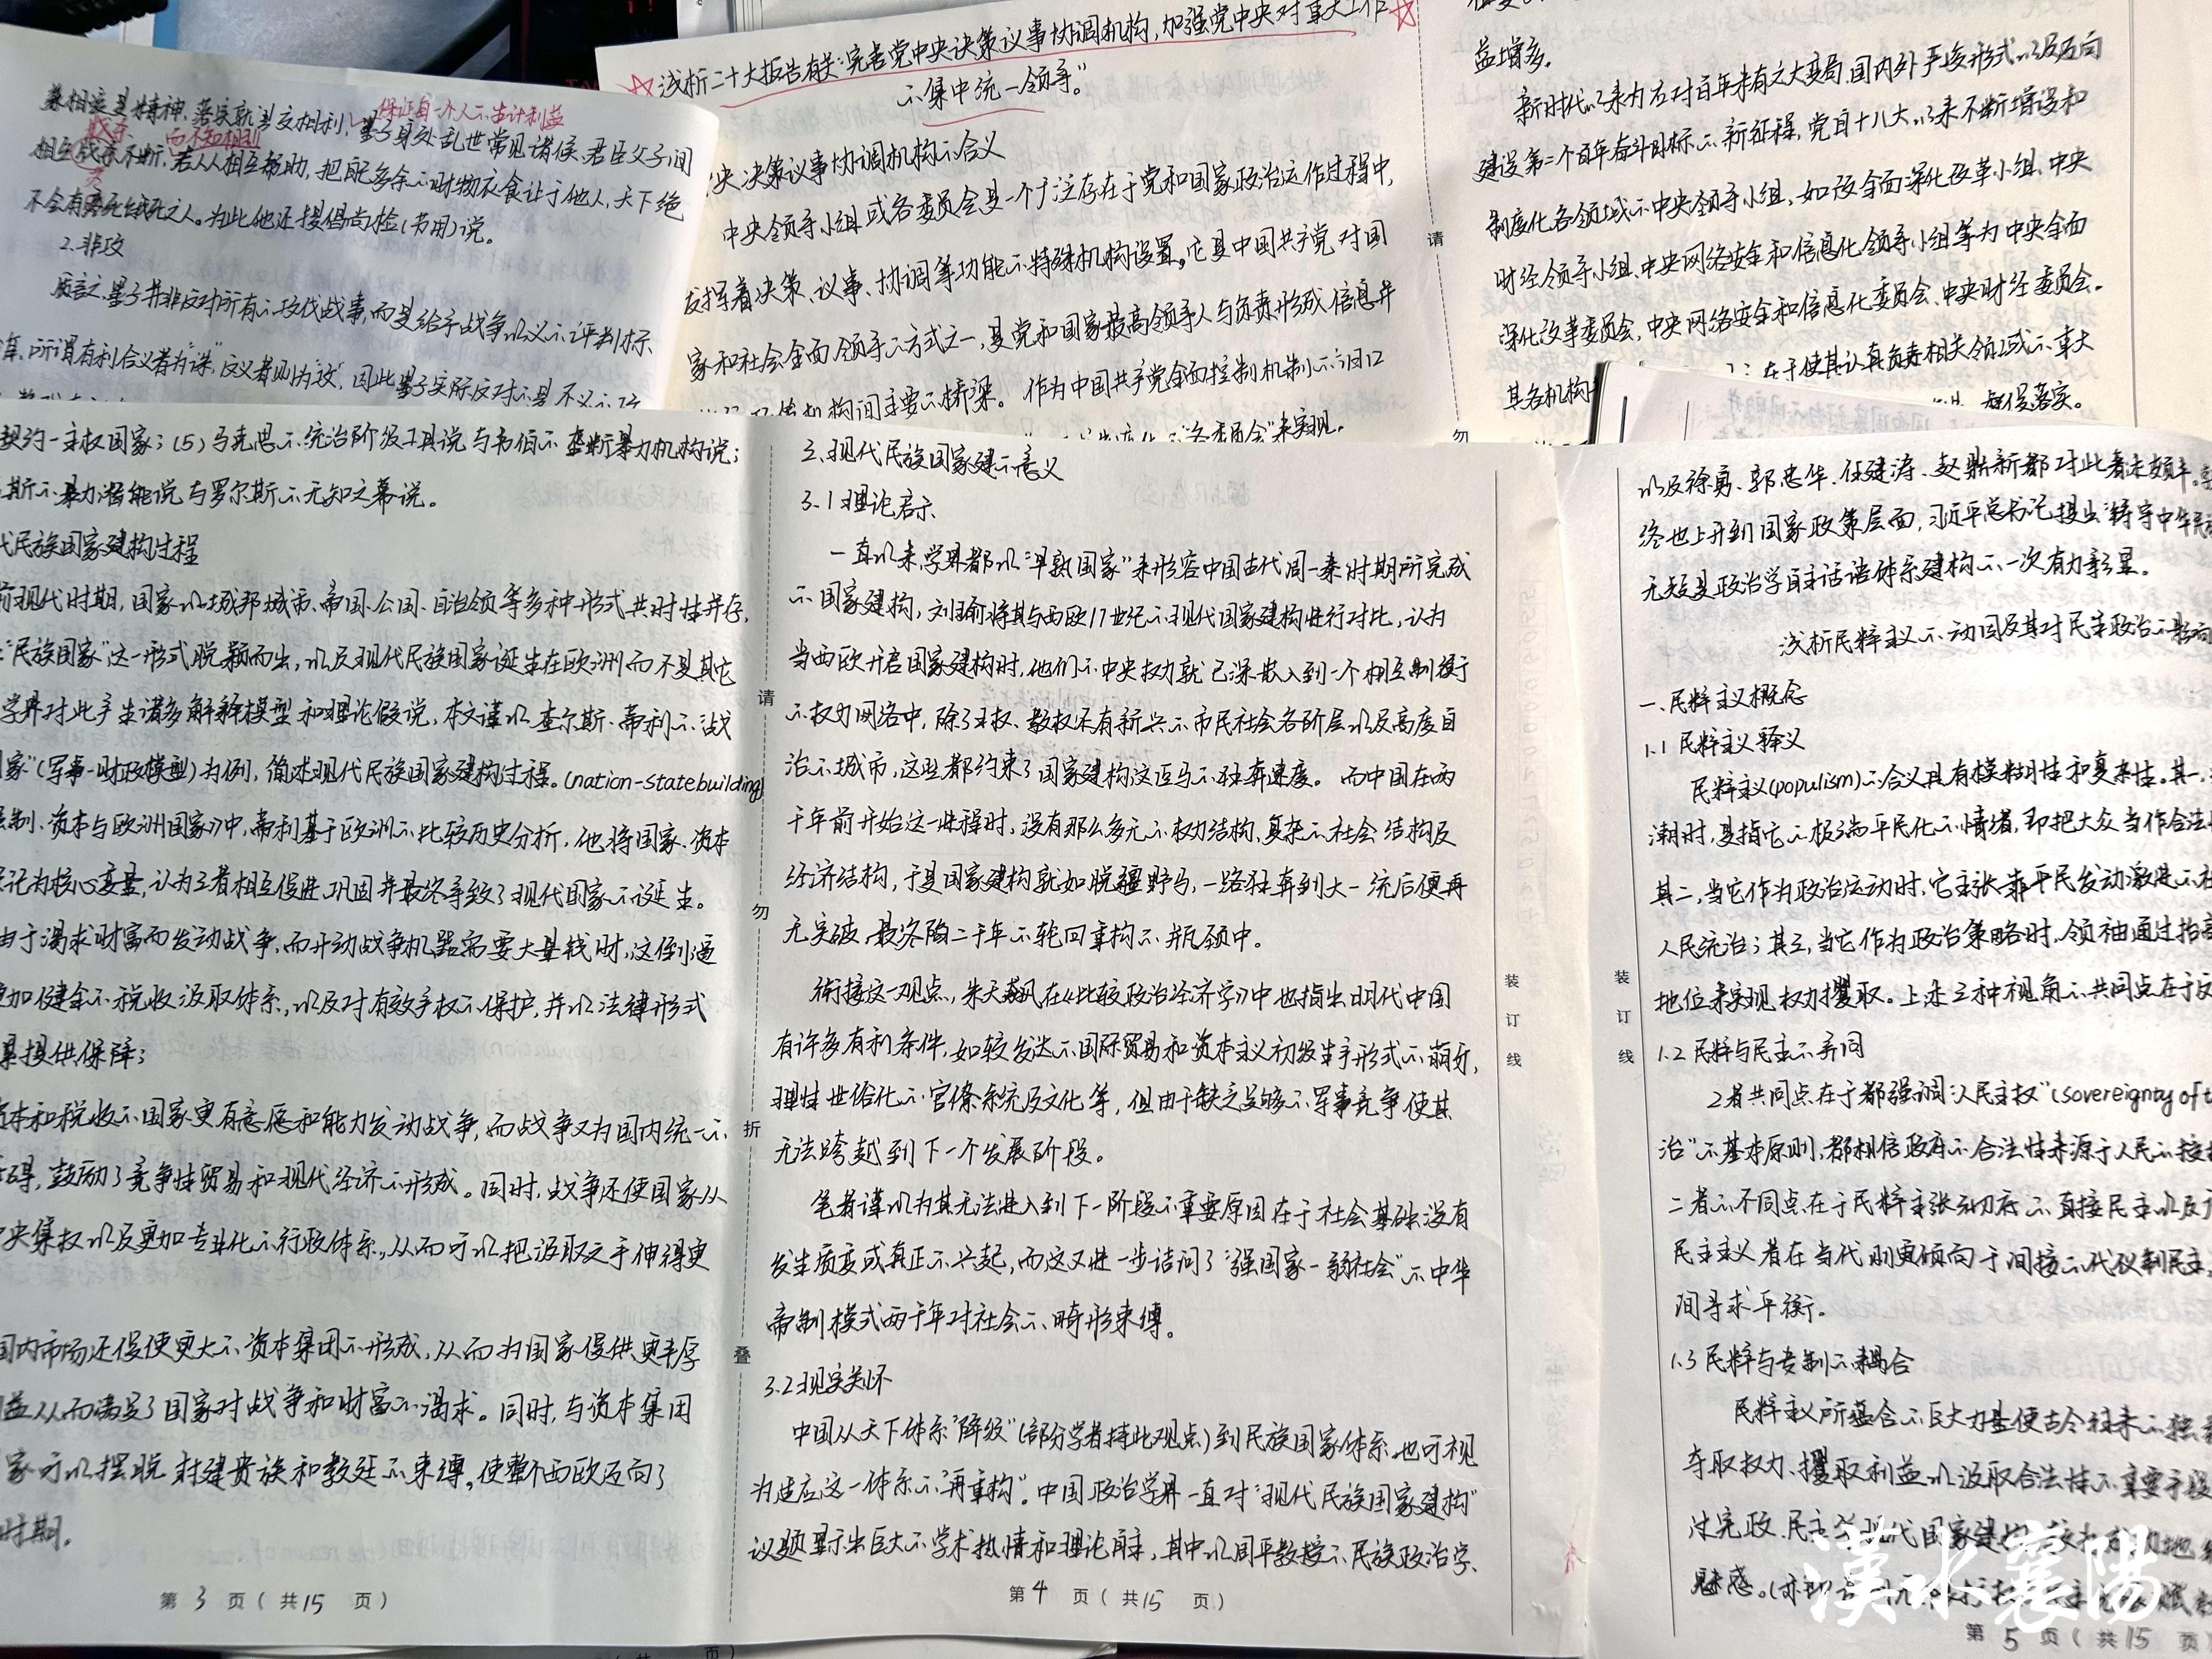 兼相爱是精神、落实就到交相利，墨子身处乱世常见诸侯、君臣父子间
保证每一个人不去计利益
而不知相利
相互战乱不断，若人人相互帮助，把自己多余的财物衣食让于他人，天下绝
不会有冻死饿死之人。为此他还提倡尚俭(节用)说。
2.非攻
质言之，墨子并非反对所有的攻伐战事，而是给予战争以义的评判标
准，所谓有利合义者为"诛"，反义者则为"攻"，因此墨子实际反对的是不义的攻
浅析二十大报告有关"完善党中央决策议事协调机构，加强党中央对重大工作
的集中统一领导。"
央决策议事协调机构的含义
中央领导小组或各委员会是一个广泛存在于党和国家政治运作过程中，
发挥着决策、议事、协调等功能的特殊机构设置。它是中国共产党对国
家和社会全面领导的方式之一，是党和国家最高领导人与负责形成信息并
机构间主要的桥梁。作为中国共产党全面控制机制的归口
"各委员会"来实现。
益增多。
新时代以来为应对百年未有之大变局、国内外严峻形式以及迈向
建设第二个百年奋斗目标的新征程，党自十八大以来不断增设和
制度化各领域的中央领导小组，如改全面深化改革小组、中央
财经领导小组、中央网络安全和信息化领导小组等为中央全面
深化改革委员会，中央网络安全和信息化委员会、中央财经委员会。
其各机构
在于使其认真负责相关领域的重大
督促落实。
契约一主权国家；(5)马克思的统治阶级工具说与韦伯的垄断暴力机构说；
斯的暴力潜能说与罗尔斯的无知之幕说。
代民族国家建构过程
前现代时期，国家以城邦城市、帝国、公国、自治领等多种形式共时性并存，
"民族国家"这一形式脱颖而出，以及现代民族国家诞生在欧洲而不是其它
学界对此产生诸多解释模型和理论假说，本文谨以查尔斯·蒂利的"战
家"(军事-财政模型)为例，简述现代民族国家建构过程。(nation-state building)
强制、资本与欧洲国家》中，蒂利基于欧洲的比较历史分析，他将国家、资本
记为核心变量，认为三者相互促进、巩固并最终导致了现代国家的诞生。
由于渴求财富而发动战争，而开动战争机器需要大量钱时，这倒逼
更加健全的税收汲取体系，以及对有效产权的保护，并以法律形式
提供保障；
资本和税收的国家更有意愿和能力发动战争，而战争又为国内统一的
碍，鼓励了竞争性贸易和现代经济的形成。同时，战争还使国家从
央集权以及更加专业化的行政体系，从而可以把汲取之手伸得更
国内市场还促使更大的资本集团的形成，从而为国家提供更丰厚
益从而满足了国家对战争和财富的渴求。同时，与资本集团
家可以摆脱封建贵族和教廷的束缚，使整个西欧迈向了
时期。
第 3 页(共15 页)
请
勿
折
叠
三、现代民族国家建的意义
3.1理论启示
一直以来，学界都以"早熟国家"来形容中国古代周—秦时期所完成
的国家建构，刘瑜将其与西欧17世纪的现代国家建构进行对比，认为
当西欧开启国家建构时，他们的中央权力就已深嵌入到一个相互制衡
的权力网络中，除了王权、教权还有新兴的市民社会各阶层以及高度自
治的城市，这些都约束了国家建构这匹马的狂奔速度。而中国在两
千年前开始这一进程时，没有那么多元的权力结构、复杂的社会结构及
经济结构，于是国家建构就如脱疆野马，一路狂奔到大一统后便再
无突破，最终陷二千年的轮回重构的瓶颈中。
衔接这一观点，朱天飚在《比较政治经济学》中也指出明代中国
有许多有利条件，如较发达的国际贸易和资本主义初级生产形式的萌芽，
理性世俗化的官僚系统及文化等，但由于缺乏足够的军事竞争使其
无法跨越到下一个发展阶段。
笔者谨以为其无法进入到下一阶段的重要原因在于社会基础没有
发生质变或真正的兴起，而这又进一步诘问了"强国家—弱社会"的中华
帝制模式两千年对社会的畸形束缚。
3.2现实关怀
中国从天下体系"降级"(部分学者持此观点)到民族国家体系，也可视
为适应这一体系的"再重构"。中国政治学界一直对"现代民族国家建构"
议题显示出巨大的学术热情和理论自主，其中以周平教授的民族政治学、
第 4 页(共15 页)
装
订
线
装
订
线
以及徐勇、郭忠华、任建涛、赵鼎新都对此着走颇丰。
终也上升到国家政策层面，习近平总书记提出"铸牢中华民族
无疑是政治学自主话语体系建构的一次有力彰显。
浅析民粹主义的动因及其对民主政治的影响
一、民粹主义概念
1.1 民粹主义释义
民粹主义(populism)的含义具有模糊性和复杂性。其一，
潮时，是指它的极端平民化的情绪，即把大众当作合法
其二，当它作为政治运动时，它主张靠平民发动激进的
人民统治；其三，当它作为政治策略时，领袖通过抬高
地位来实现权力攫取。上来三种视角的共同点在于
1.2 民粹与民主的异同
2者共同点在于都强调"人民主权"(sovereignty of
治"的基本原则，都相信政府的合法性来源于人民的授权
二者的不同点在于民粹主张彻底的直接民主以及
民主主义者在当代则更倾向于间接的代议制民主，
间寻求平衡。
1.3 民粹与专制的耦合
民粹主义所蕴含的巨大力量使古今往来的独裁
夺取权力、攫取利益以汲取合法性的重要手段
过宪政、民主等现代国家建
魅惑。
第 5 页(共15 页
漢水襄陽